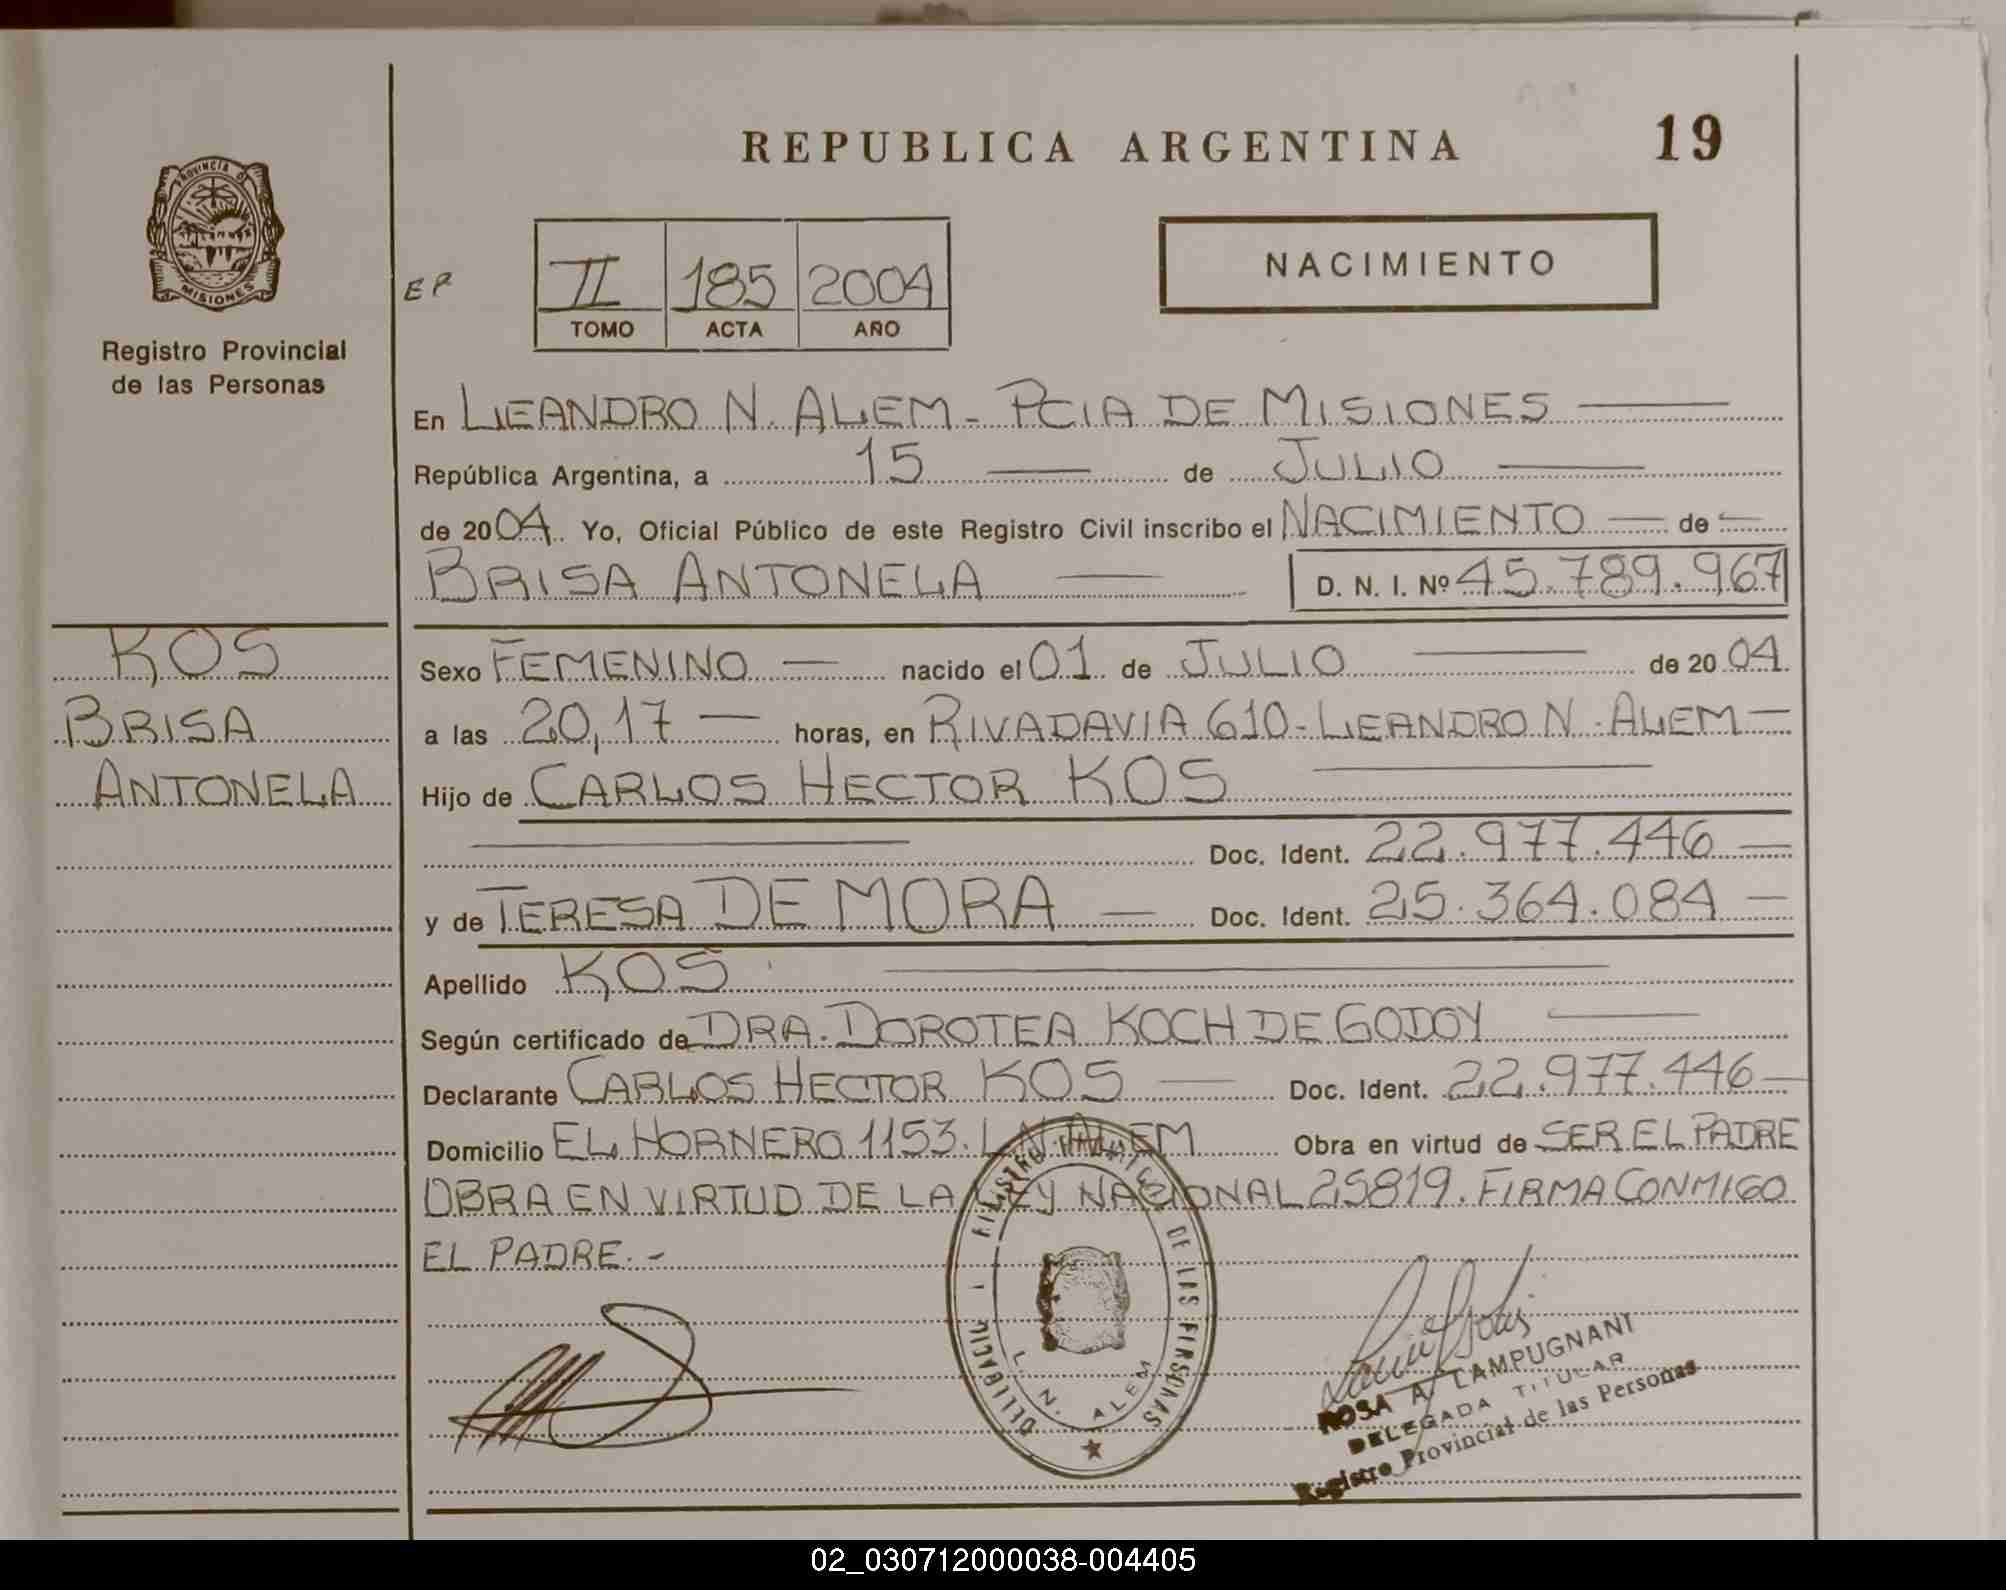 REPUBLICA ARGENTINA
19
PROVINCIA D
MISIONES
Registro Provincial
de las Personas
EP
II 185 2004
TOMO ACTA AÑO
NACIMIENTO
En LEANDRO N. ALEM - PCIA DE MISIONES
República Argentina, a 15 de JULIO
de 2004. Yo, Oficial Público de este Registro Civil inscribo el NACIMIENTO de
BRISA ANTONELA D. N. I. Nº 45.789.967
KOS
BRISA
ANTONELA
Sexo FEMENINO nacido el 01 de JULIO de 2004.
a las 20,17 horas, en RIVADAVIA 610 - LEANDRO N. ALEM
Hijo de CARLOS HECTOR KOS
Doc. Ident. 22.977.446
y de TERESA DE MORA Doc. Ident. 25.364.084
Apellido KOS
Según certificado de DRA. DOROTEA KOCH DE GODOY
Declarante CARLOS HECTOR KOS Doc. Ident. 22.977.446
Domicilio EL HORNERO 1153. L.N. ALEM Obra en virtud de SER EL PADRE
OBRA EN VIRTUD DE LA LEY NACIONAL 25819. FIRMA CONMIGO
EL PADRE.-
DE LAS PERSONAS
L. N. ALEM
ROSA A. CAMPUGNANI
DELEGADA TITULAR
Registro Provincial de las Personas
02_030712000038-004405